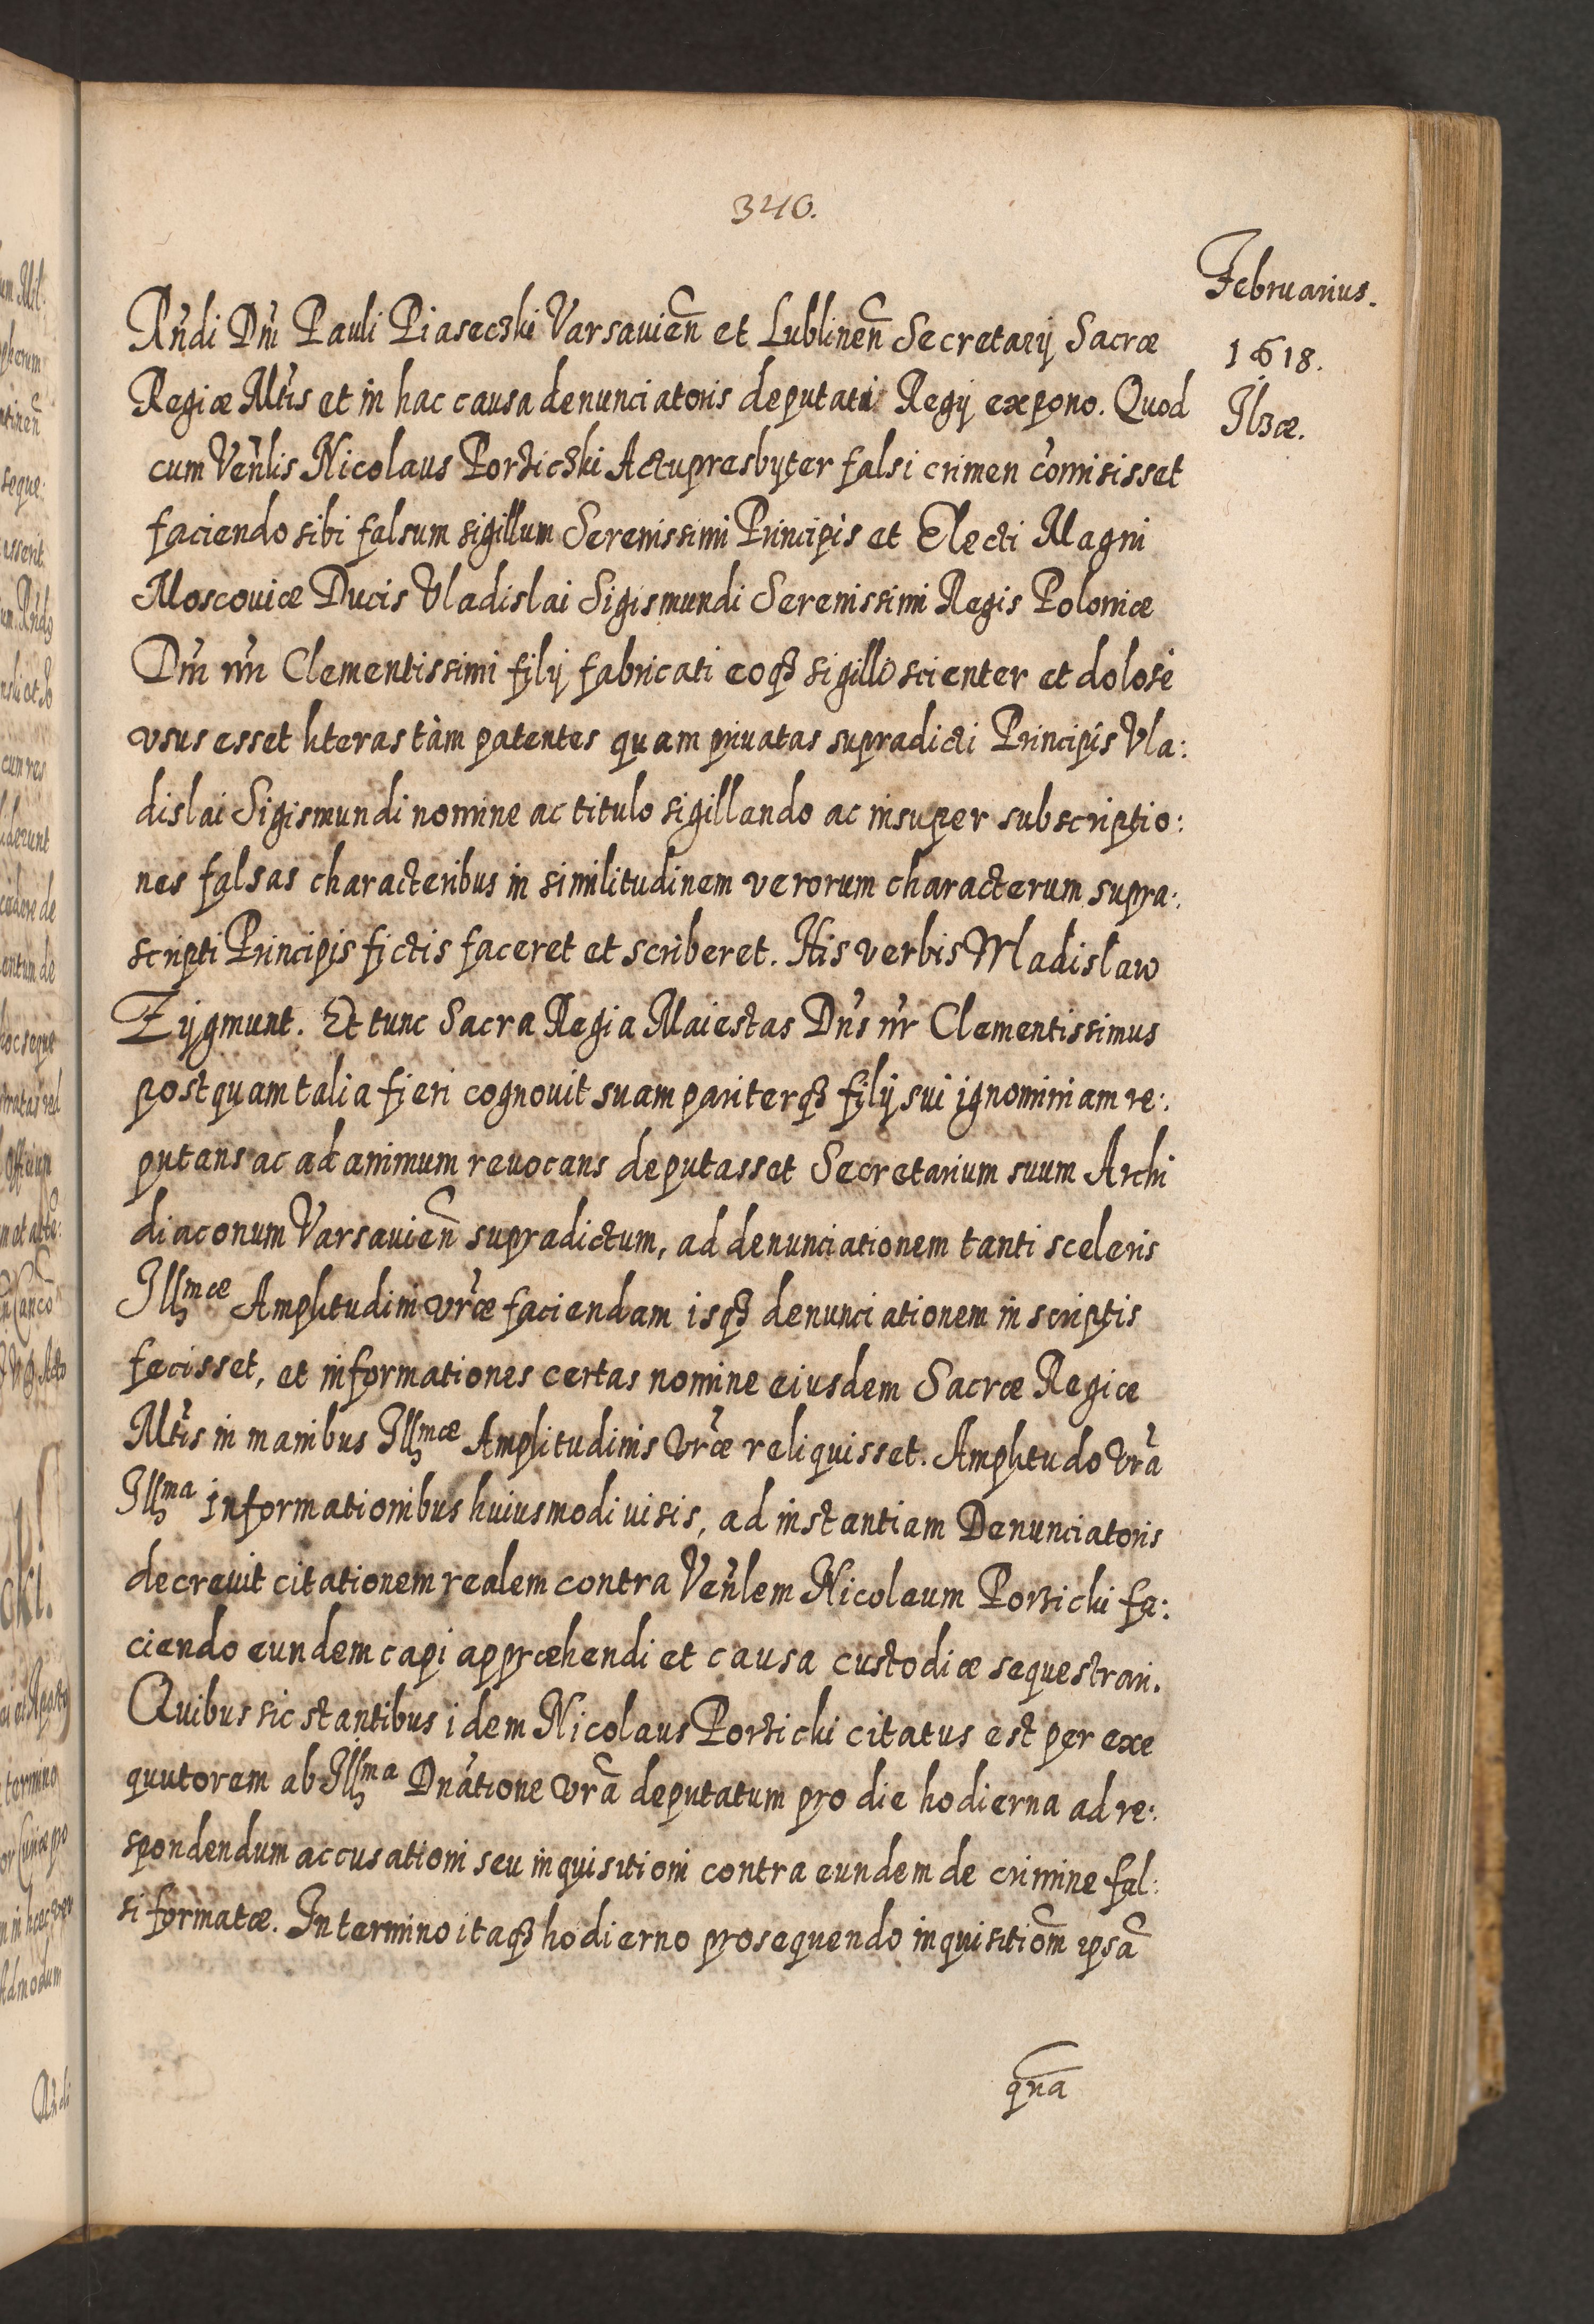 340.
Februarius.
1618.
Ilzæ.
Rńdi Dńi Pauli Piaseczki Varsavień et Lublineń Secretarij Sacræ
Regiæ Mtis et in hac causa denunciatoris deputati Regij expono. Quod
cum Venlis Nicolaus Porziczki Actupresbyter falsi crimen comisisset
faciendo sibi falsum sigillum Serenissimi Principis et Electi Magni
Moscouiæ Ducis Vladislai Sigismundi Serenissimi Regis Poloniæ
Dńi nri Clementissimi filij fabricati eoqꝫ sigillo scienter et dolose
vsus esset literas tàm patentes quam priuatas supradicti Principis Vla:
dislai Sigismundi nomine ac titulo sigillando ac insuper subscriptio:
nes falsas characteribus in similitudinem verorum characterum supra:
scripti Principis fictis faceret et scriberet. His verbis Wladislaw
Zygmunt. Et tunc Sacra Regia Maiestas Dńs nr Clementissimus
postquam talia fieri cognouit suam pariterqꝫ filij sui ignominiam re:
putans ac ad animum reuocans deputasset Secretarium suum Archi
diaconum Varsavień supradictum, ad denunciationem tanti sceleris
Illmæ Amplitudini vræ faciendam isqꝫ denunciationem in scriptis
fecisset, et informationes certas nomine eiusdem Sacræ Regiæ
Mtis in manibus Illmæ Amplitudinis vræ reliquisset. Amplitudo vra
Illma informationibus huiusmodi uisis, ad instantiam Denunciatoris
decreuit citationem realem contra Venlem Nicolaum Porzicki fa:
ciendo eundem capi appræhendi et causa custodiæ sequestrari.
Quibus sic stantibus idem Nicolaus Porzicki citatus est per exe
quutorem ab Illma Dnatione vra deputatum pro die hodierna ad re:
spondendum accusationi seu inquisitioni contra eundem de crimine fal:
si formatæ. In termino itaqꝫ hodierno prosequendo inquisitiom ipsa
qna